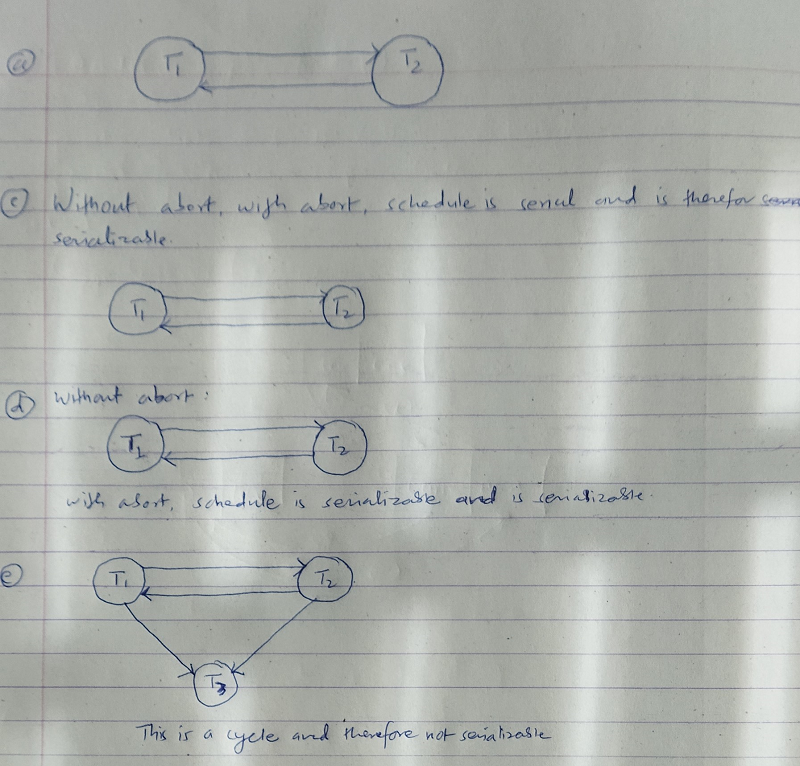 (a) T1 T2
(c) Without abort, with abort, schedule is serial and is therefor
serializable.
T1 T2
(d) Without abort:
T1 T2
with abort, schedule is serializable and is serializable.
(e) T1 T2
T3
This is a cycle and therefore not serializable